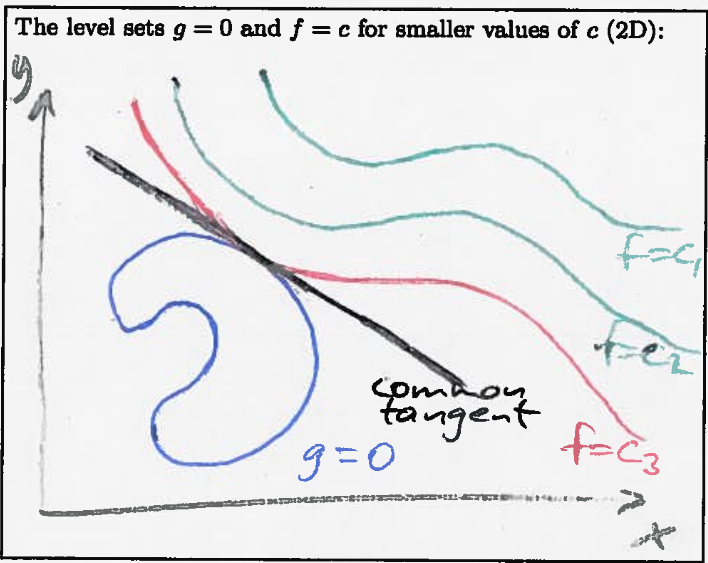 The level sets g = 0 and f = c for smaller values of c (2D):
y
f=c₁
f=c₂
common
tangent
f=c₃
g=0
x